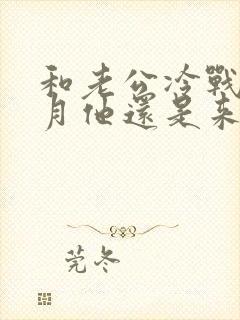 和老公冷戰
月他還是來
莞冬